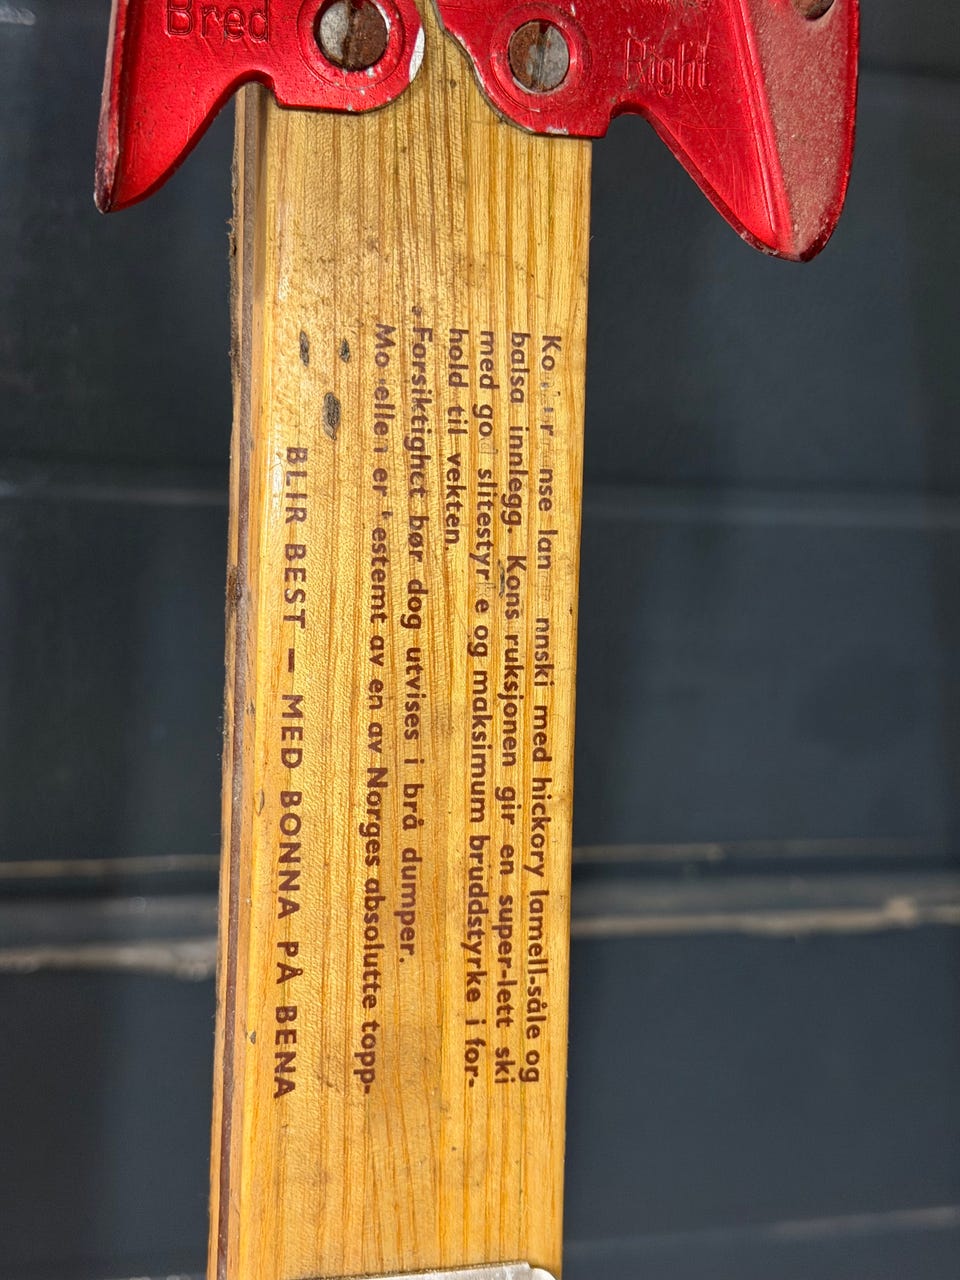 Bred
Right
med hickory lamell-såle og
balsa innlegg. Konstruksjonen gir en super-lett ski
med god slitestyrke og maksimum bruddstyrke i for-
hold til vekten.
Forsiktighet bør dog utvises i brå dumper.
Modellen er bestemt av en av Norges absolutte topp-
BLIR BEST — MED BONNA PÅ BENA